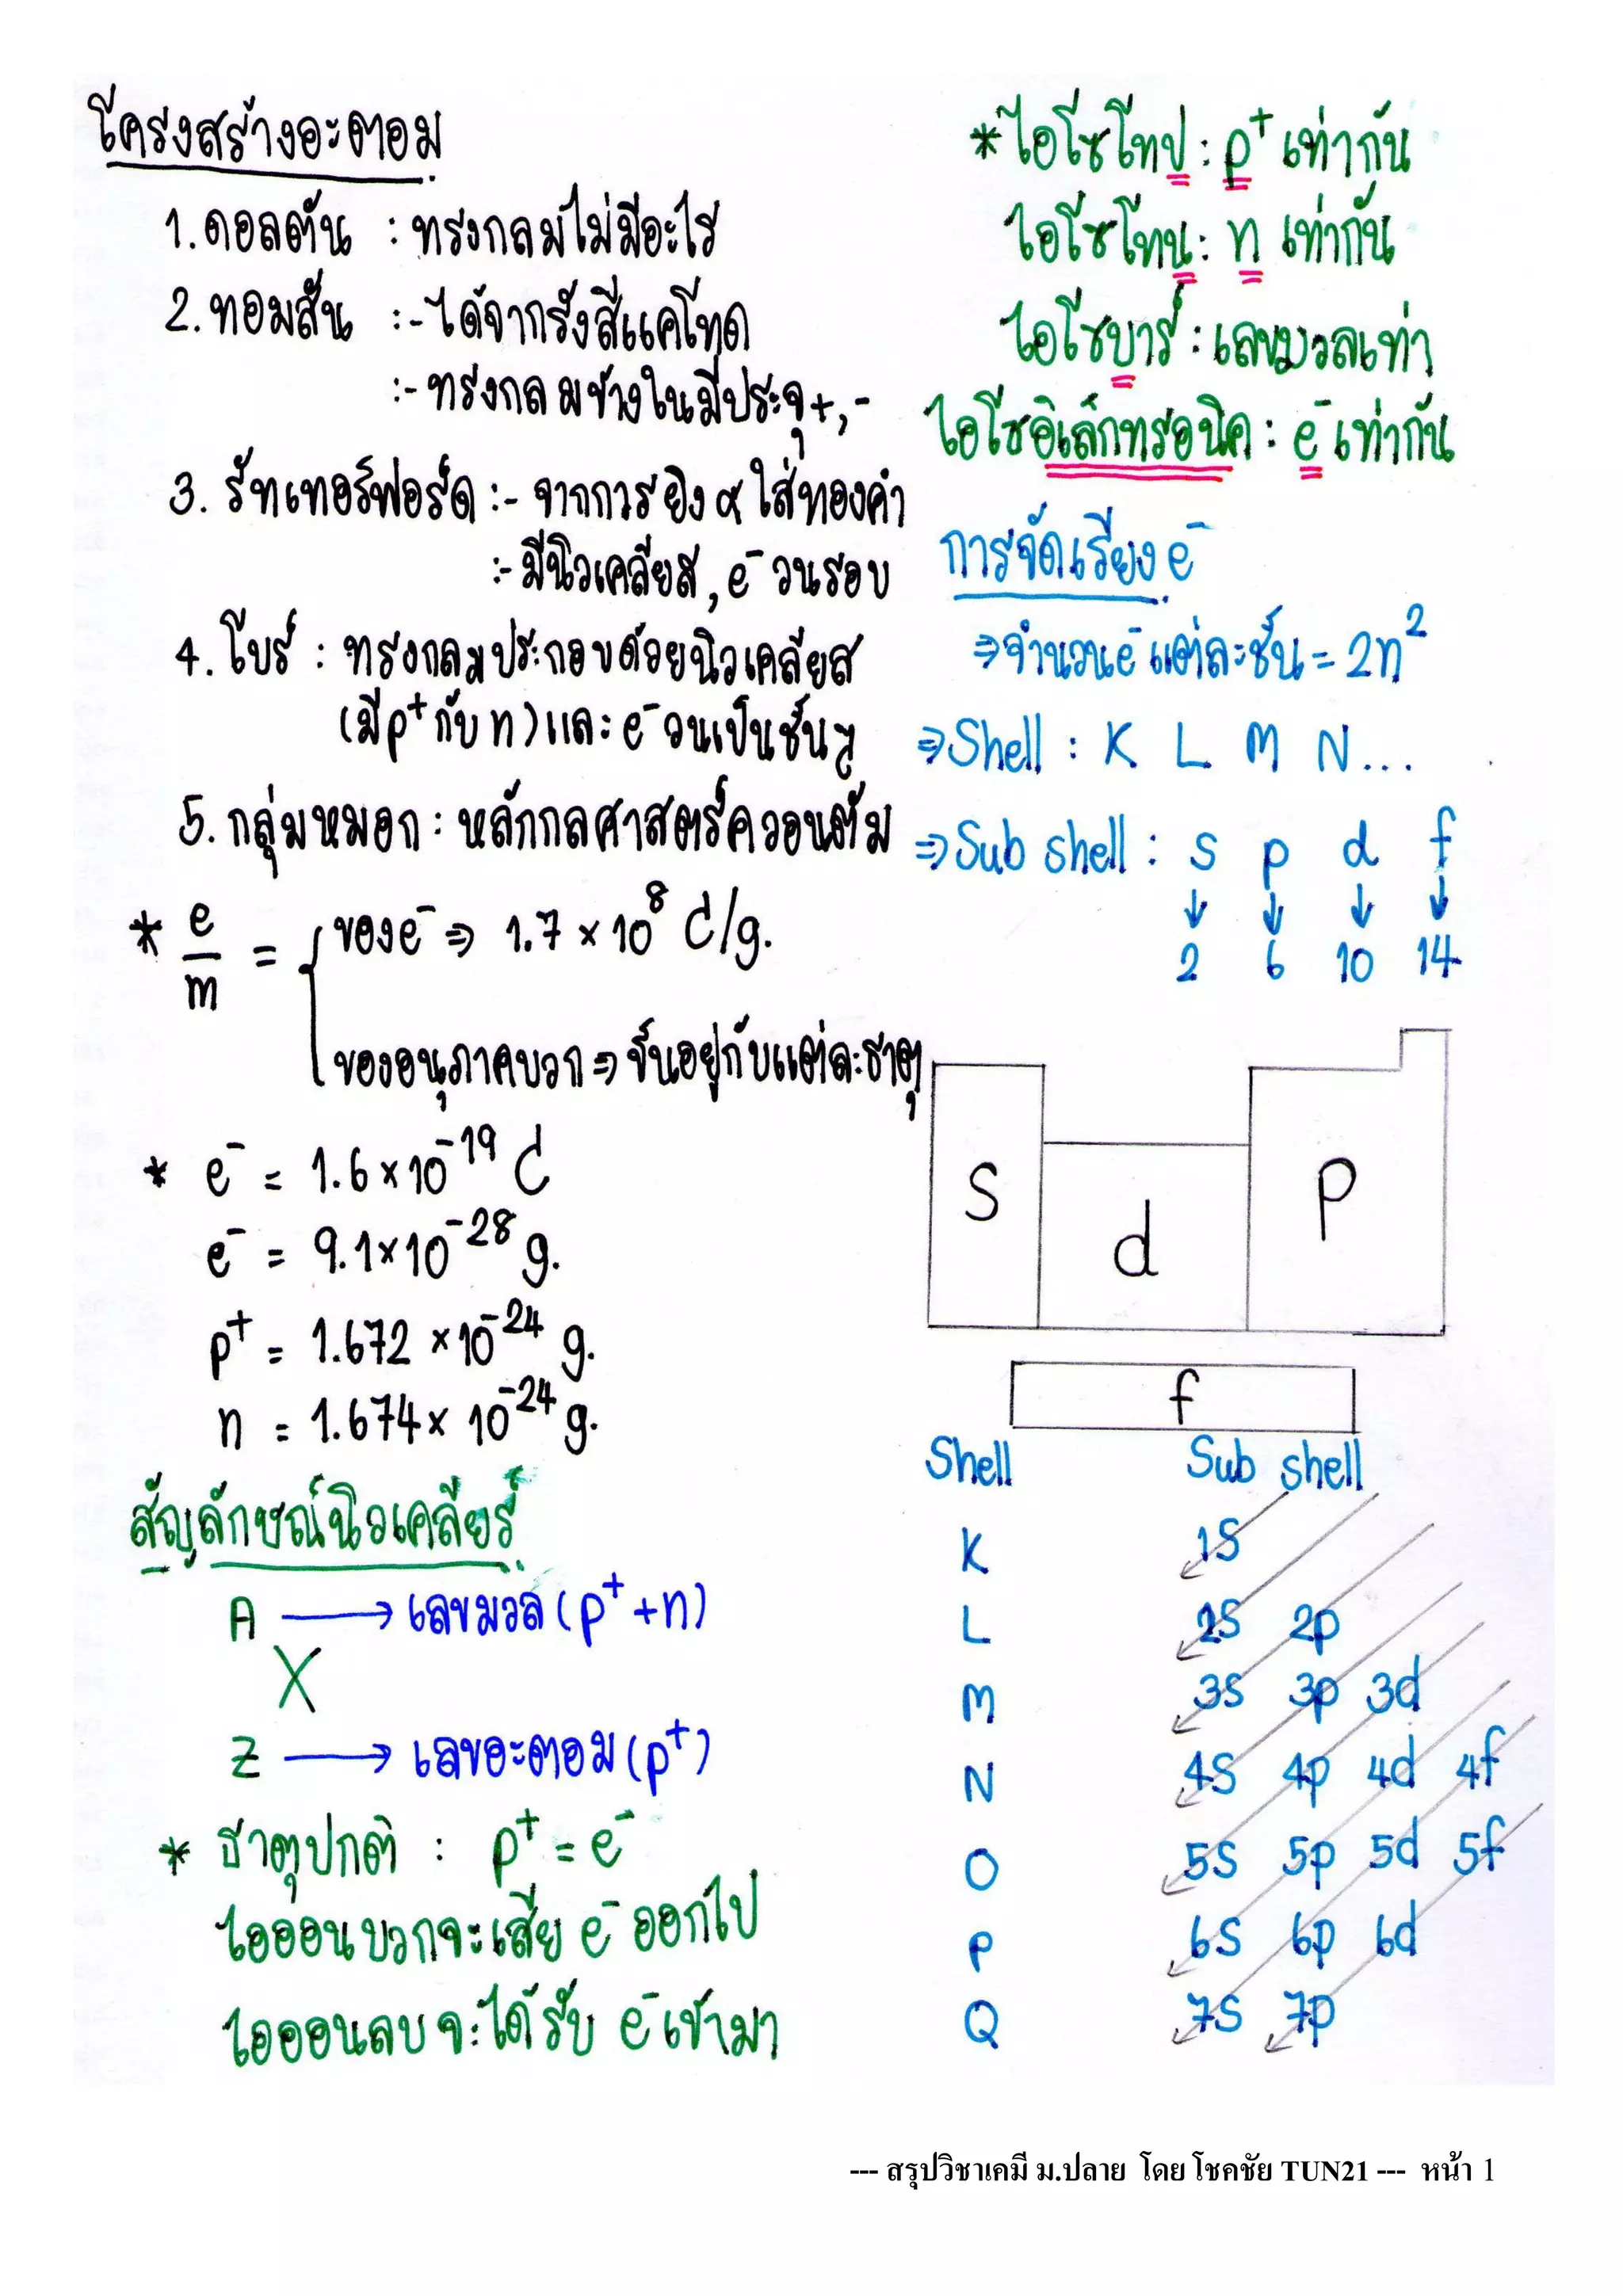 โครงสร้างอะตอม
1. ดอลตัน : ทรงกลมไม่มีอะไร
2. ทอมสัน :- ได้จากรังสีแคโทด
:- ทรงกลมข้างในมีประจุ +, -
3. รัทเทอร์ฟอร์ด :- จากการยิง α ใส่ทองคำ
:- มีนิวเคลียส, e⁻ วนรอบ
4. โบร์ : ทรงกลมประกอบด้วยนิวเคลียส
(มี p⁺ กับ n) และ e⁻ วนเป็นชั้นๆ
5. กลุ่มหมอก : หลักกลศาสตร์ควอนตัม
* e/m = { ของ e⁻ ⇒ 1.7 × 10⁸ C/g.
ของอนุภาคบวก ⇒ ขึ้นอยู่กับแต่ละธาตุ
* e⁻ = 1.6 × 10⁻¹⁹ C
e⁻ = 9.1 × 10⁻²⁸ g.
p⁺ = 1.672 × 10⁻²⁴ g.
n = 1.674 × 10⁻²⁴ g.
สัญลักษณ์นิวเคลียร์
A → เลขมวล (p⁺ + n)
X
Z → เลขอะตอม (p⁺)
* ธาตุปกติ : p⁺ = e⁻
ไอออนบวกจะเสีย e⁻ ออกไป
ไอออนลบจะได้รับ e⁻ เข้ามา
* ไอโซโทป : p⁺ เท่ากัน
ไอโซโทน : n เท่ากัน
ไอโซบาร์ : เลขมวลเท่า
ไอโซอิเล็กทรอนิค : e⁻ เท่ากัน
การจัดเรียง e⁻
⇒ จำนวน e⁻ แต่ละชั้น = 2n²
⇒ Shell : K L M N...
⇒ Sub shell : s p d f
↓ ↓ ↓ ↓
2 6 10 14
S d P
f
Shell Sub shell
K 1S
L 2S 2p
M 3S 3p 3d
N 4S 4p 4d 4f
O 5S 5p 5d 5f
P 6S 6p 6d
Q 7S 7p
--- สรุปวิชาเคมี ม.ปลาย โดย โชคชัย TUN21 --- หน้า 1